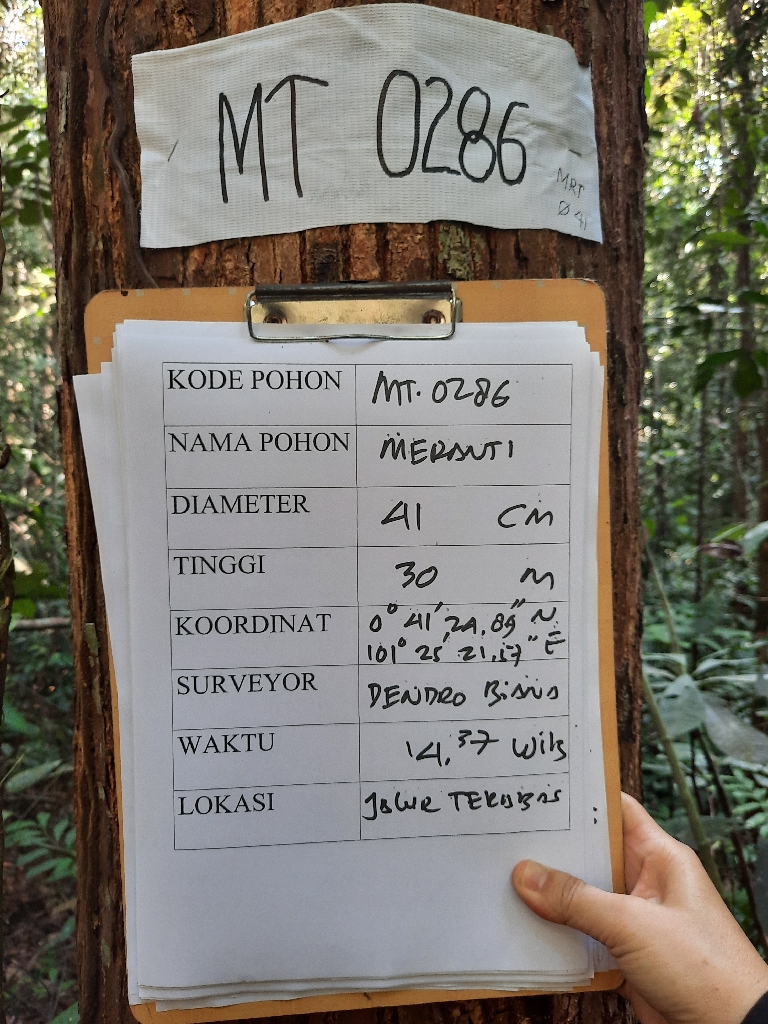 MT 0286
MRT
Ø 41
KODE POHON MT. 0286
NAMA POHON MERANTI
DIAMETER 41 CM
TINGGI 30 M
KOORDINAT 0° 41' 24,89" N
101° 25' 21,57" E
SURVEYOR DENDRO
WAKTU 14.37 Wib
LOKASI JALUR TERABAS